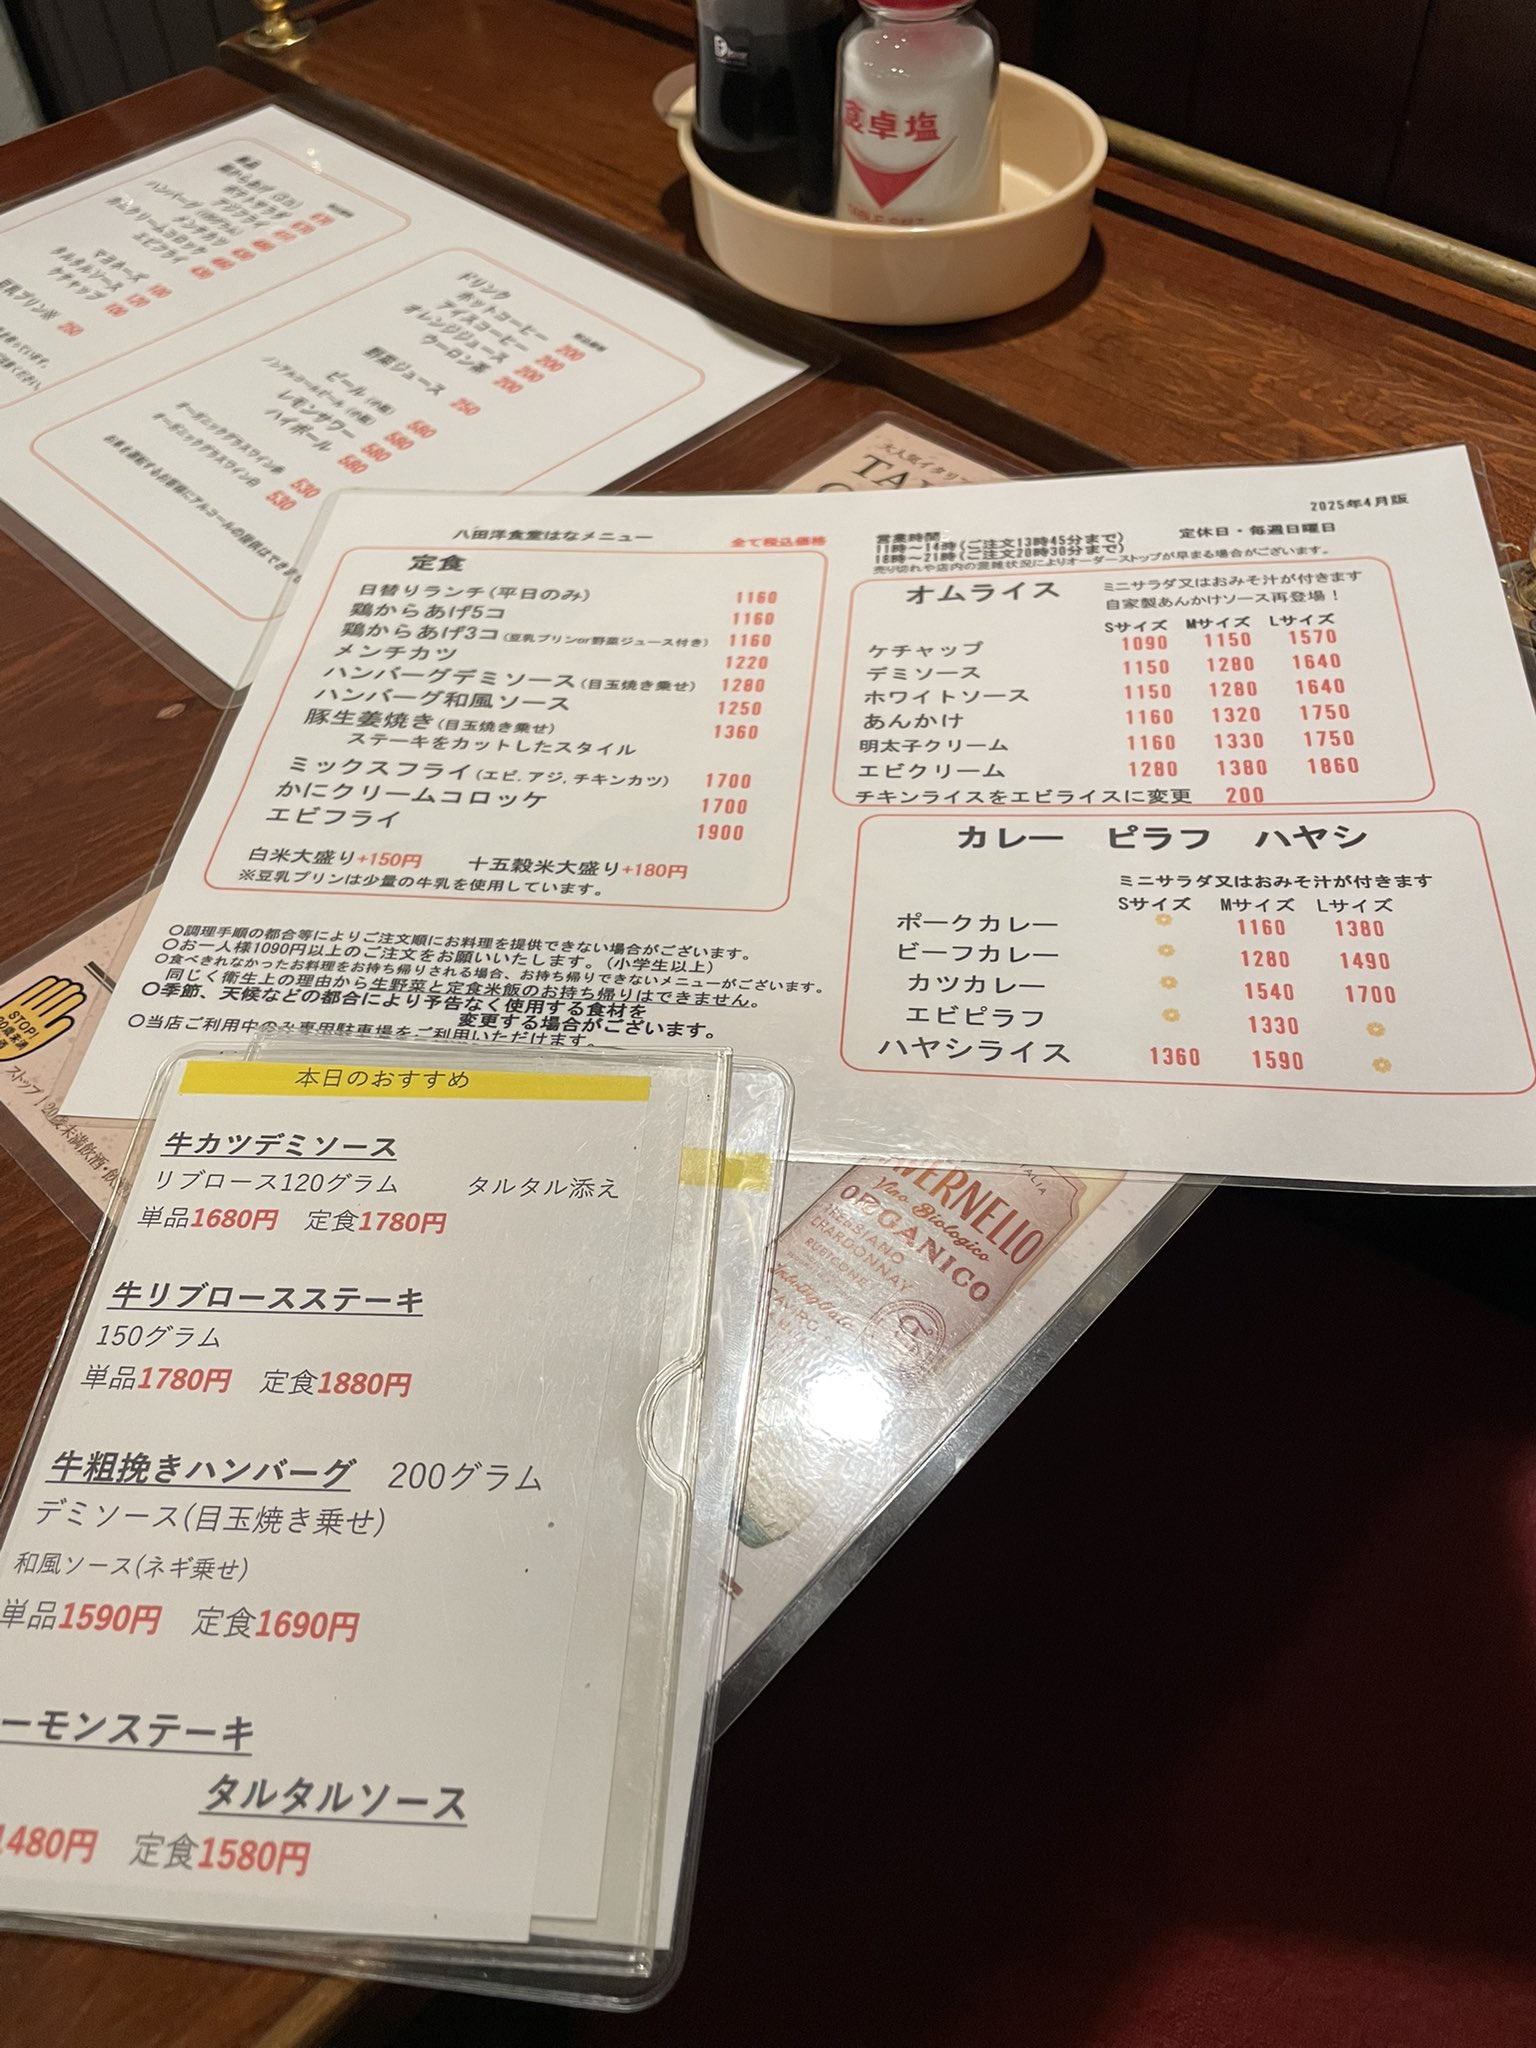 食卓塩
単品
ポテトサラダ
アジフライ
メンチカツ
カニクリームコロッケ
エビフライ
マヨネーズ 100
タルタルソース 120
ケチャップ 100
豆乳プリン※ 250
ドリンク
ホットコーヒー 200
アイスコーヒー 200
オレンジジュース 200
ウーロン茶 200
野菜ジュース 250
ビール(小瓶) 580
ノンアルコールビール(小瓶) 580
レモンサワー 580
ハイボール 580
オーガニックグラスワイン赤 530
オーガニックグラスワイン白 530
お車を運転するお客様にアルコールの提供はできま
大人気イタリ
八田洋食堂はなメニュー 全て税込価格
定食
日替りランチ(平日のみ) 1160
鶏からあげ5コ 1160
鶏からあげ3コ(豆乳プリンor野菜ジュース付き) 1160
メンチカツ 1220
ハンバーグデミソース(目玉焼き乗せ) 1280
ハンバーグ和風ソース 1250
豚生姜焼き(目玉焼き乗せ) 1360
ステーキをカットしたスタイル
ミックスフライ(エビ, アジ, チキンカツ) 1700
かにクリームコロッケ 1700
エビフライ 1900
白米大盛り+150円 十五穀米大盛り+180円
※豆乳プリンは少量の牛乳を使用しています。
〇調理手順の都合等によりご注文順にお料理を提供できない場合がございます。
〇お一人様1090円以上のご注文をお願いいたします。(小学生以上)
〇食べきれなかったお料理をお持ち帰りされる場合、お持ち帰りできないメニューがございます。
同じく衛生上の理由から生野菜と定食米飯のお持ち帰りはできません。
〇季節、天候などの都合により予告なく使用する食材を
変更する場合がございます。
〇当店ご利用中のみ専用駐車場をご利用いただけます。
2025年4月版
営業時間 定休日・毎週日曜日
11時～14時(ご注文13時45分まで)
18時～21時(ご注文20時30分まで)
売り切れや店内の混雑状況によりオーダーストップが早まる場合がございます。
オムライス ミニサラダ又はおみそ汁が付きます
自家製あんかけソース再登場！
Sサイズ Mサイズ Lサイズ
ケチャップ 1090 1150 1570
デミソース 1150 1280 1640
ホワイトソース 1150 1280 1640
あんかけ 1160 1320 1750
明太子クリーム 1160 1330 1750
エビクリーム 1280 1380 1860
チキンライスをエビライスに変更 200
カレー ピラフ ハヤシ
ミニサラダ又はおみそ汁が付きます
Sサイズ Mサイズ Lサイズ
ポークカレー 1160 1380
ビーフカレー 1280 1490
カツカレー 1540 1700
エビピラフ 1330
ハヤシライス 1360 1590
STOP!
ストップ！20歳未満飲酒・飲
本日のおすすめ
牛カツデミソース
リブロース120グラム タルタル添え
単品1680円 定食1780円
牛リブロースステーキ
150グラム
単品1780円 定食1880円
牛粗挽きハンバーグ 200グラム
デミソース(目玉焼き乗せ)
和風ソース(ネギ乗せ)
単品1590円 定食1690円
ーモンステーキ
タルタルソース
1480円 定食1580円
VERNELLO
Vino Biologico
ORGANICO
TREBBIANO
CHARDONNAY
RUBICONE
ITALIA